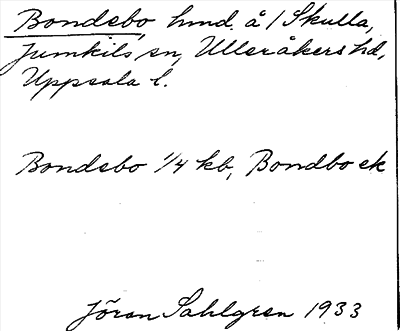 Bondebo, hmd. å 1 Skulla,
Jumkils sn, Ulleråkers hd,
Uppsala l.
Bondebo 1/4 kb, Bondbo ek
Jöran Sahlgren 1933